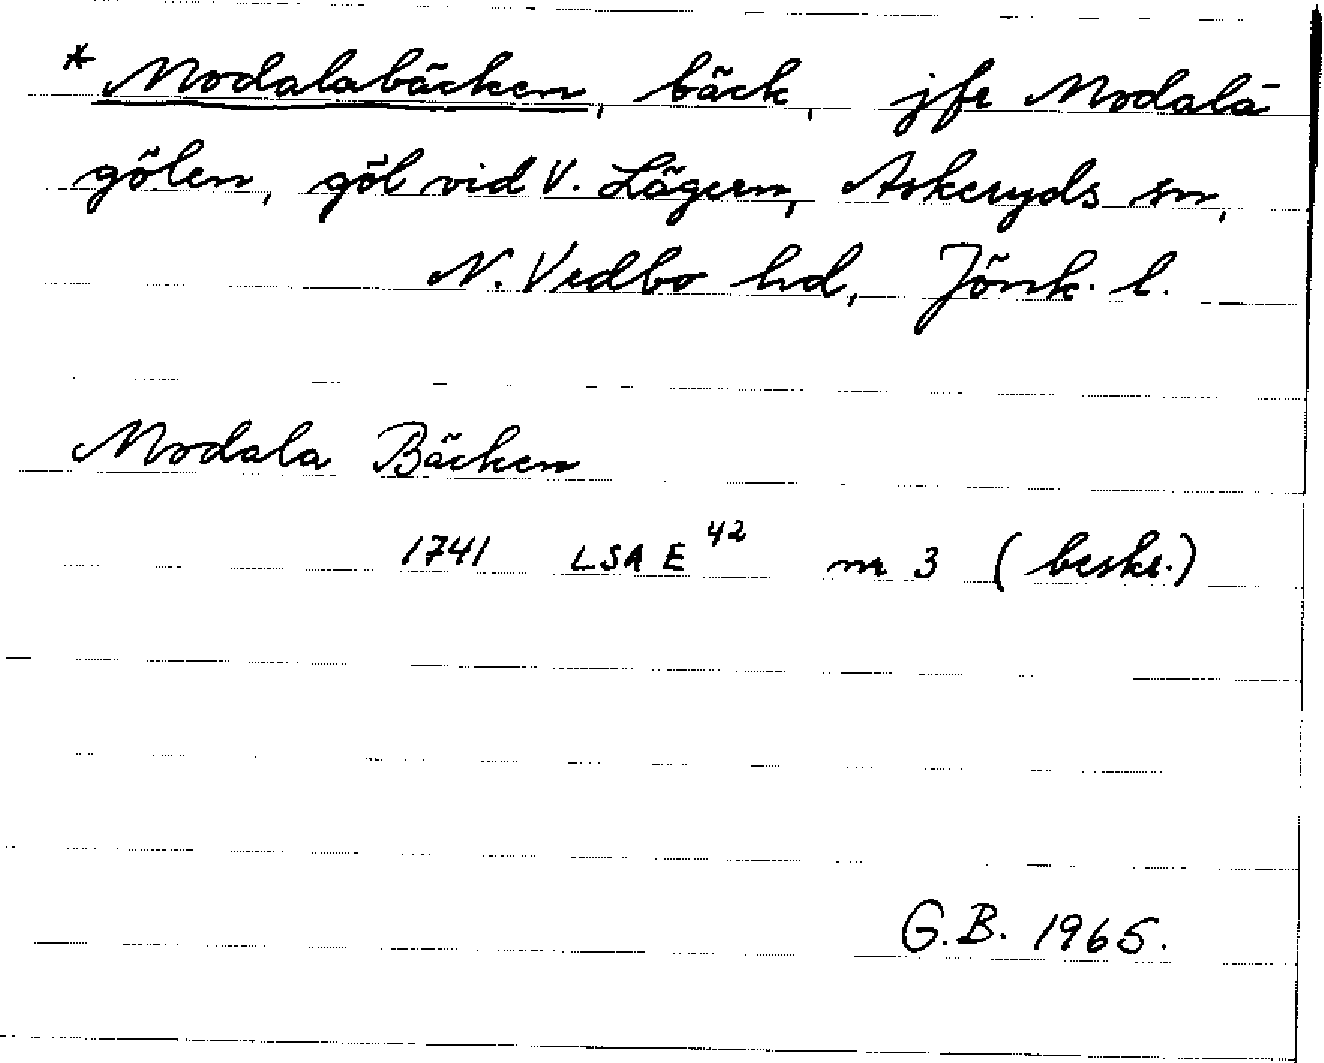 * Modalabäcken, bäck, jfr Modala-
gölen, göl vid V. Lägern, Askeryds sn,
N. Vedbo hd, Jönk. l.
Modala Bäcken
1741 LSA E 42 nr 3 (beskr.)
G.B. 1965.